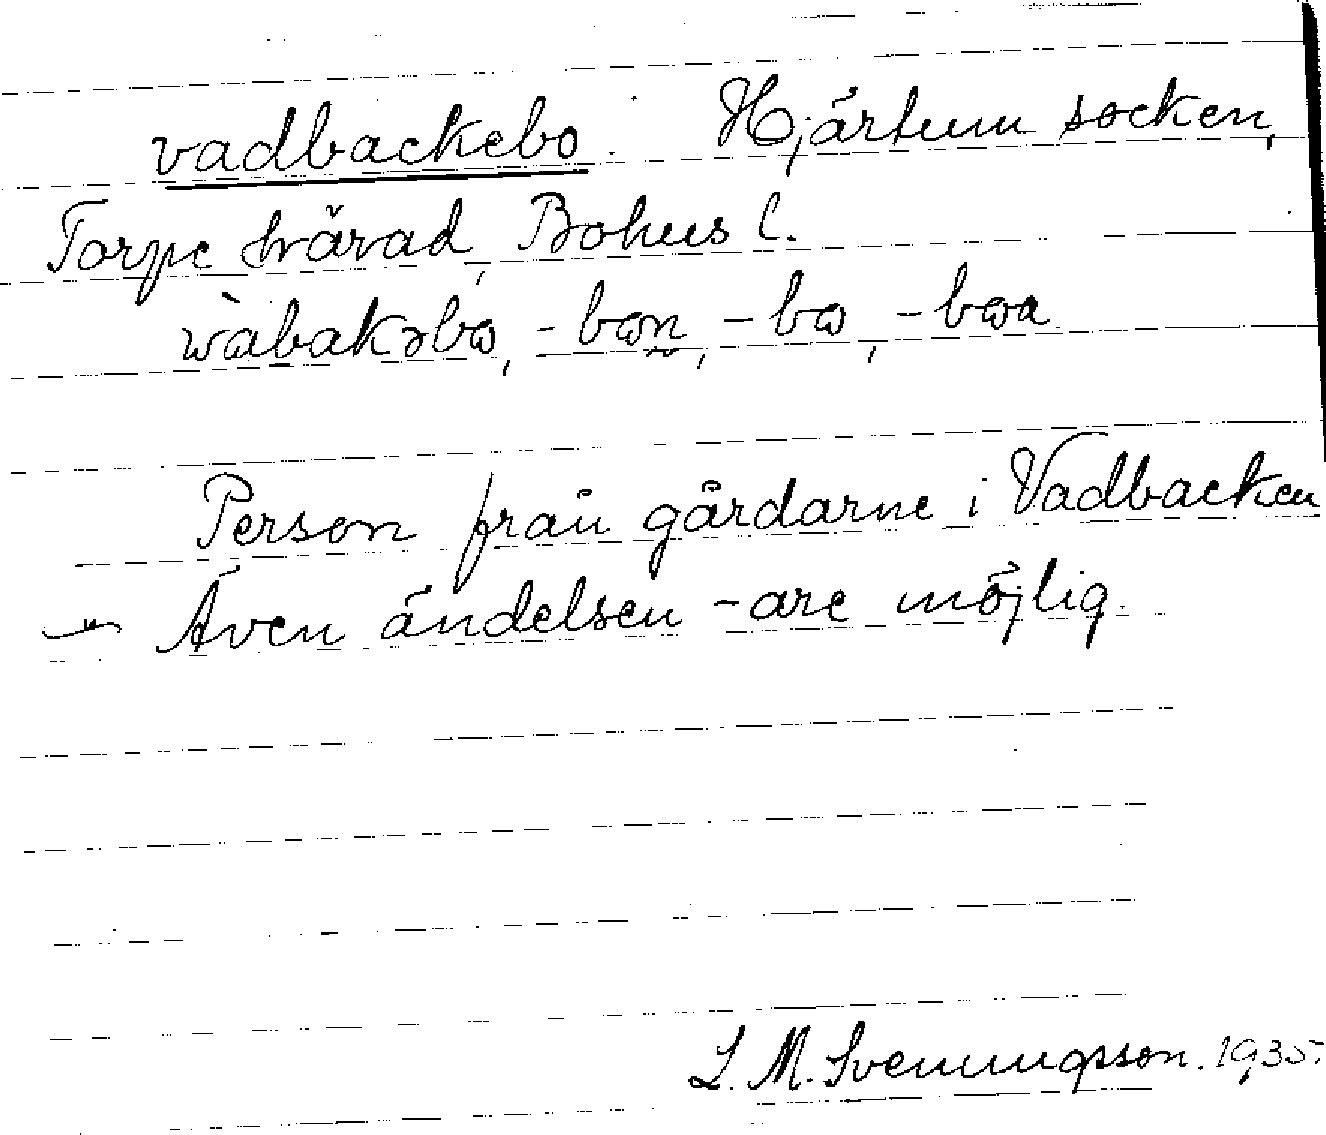 vadbackebo. Hjärtum socken,
Torpe härad, Bohus l.
wàbakəbω, -bωn, -bω, -bωa
Person från gårdarne i Vadbacken
— Även ändelsen -are möjlig.
L. M. Svenungsson. 1935.